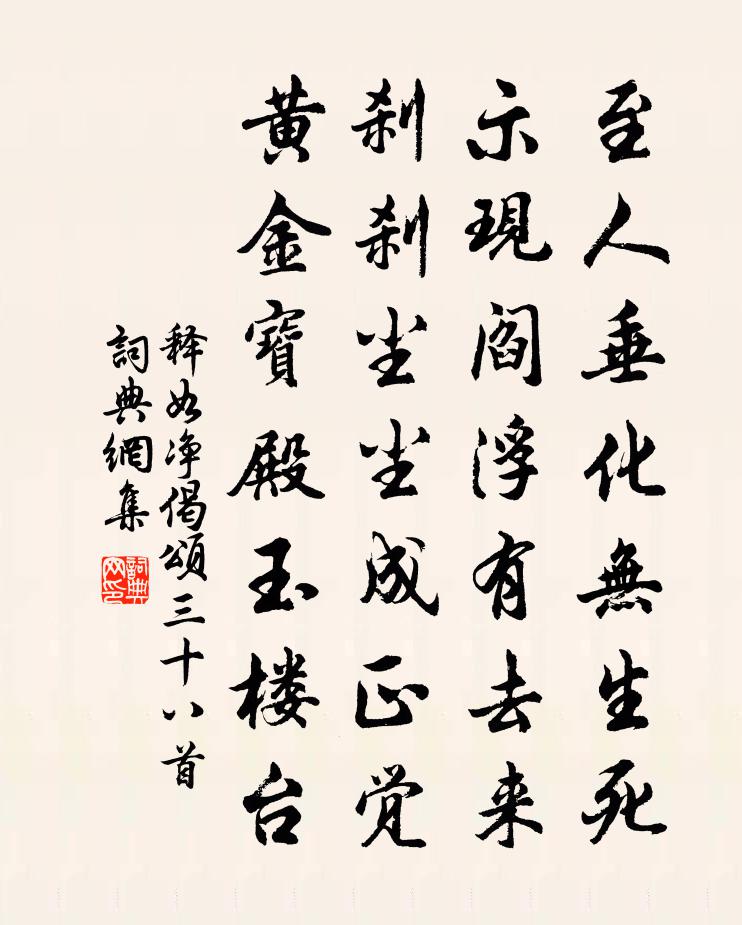 至人垂化無生死
示現閻浮有去来
刹刹尘尘成正觉
黄金寶殿玉楼台
释如净偈頌三十八首
詞典網集
詞典网印